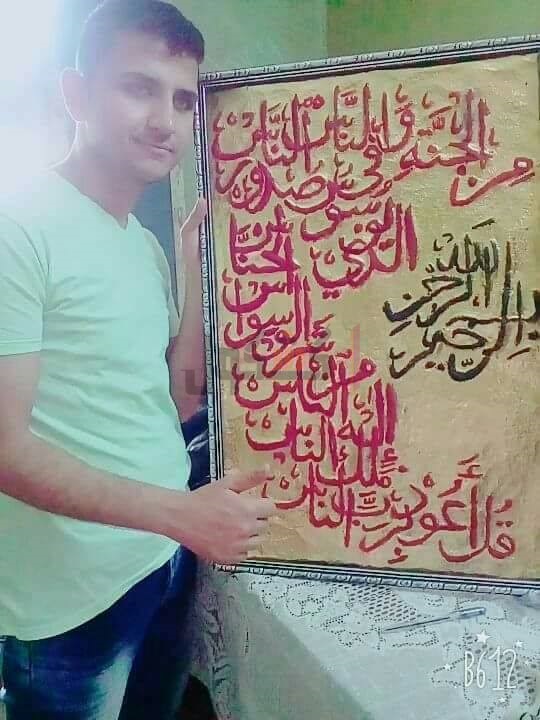 بسم الله الرحمن الرحيم
قُل أَعوذ بربِّ الناس
ملك الناس
اله الناس
من شر
الوسواس
الخنَّاس
الذي يوسوس
في صدور النَّاس
مِن الجنَّة وَ النَّاس
B612